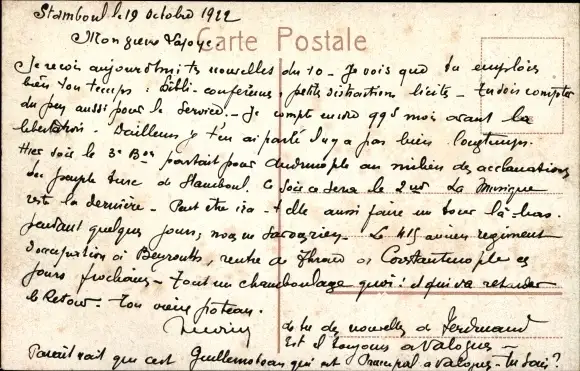 Stamboul le 19 octobre 1922
Mon vieux
Carte Postale
Je reçois aujourd'hui tes nouvelles du 10 - Je vois que tu emploies
bien ton temps : Bibli-conférences, petits distraction licites - Tu dois compter
du peu aussi pour le service. - Je compte encore mois avant la
libération. D'ailleurs je t'en ai parlé il y a pas bien longtemps.
Hier soir le 3e Bon partait pour Andrinople au milieu des acclamations
du peuple turc de Stamboul. Ce soir ce sera le 2nd La Musique
est la dernière - Peut être ira-t-elle aussi faire un tour là-bas.
pendant quelques jours, nous ne savons rien - Le 415 ancien regiment
d'occupation à Beyrouth, rentre de Thrace à Constantinople ces
jours prochains - Tout un chambondage quoi ! et qui va retarder
le Retour. Ton vieux poteau.
as tu des nouvelles de Ferdinand
Est il toujours à Valognes -
Paraitrait que c'est qui est Principal à Valognes - tu sais ?